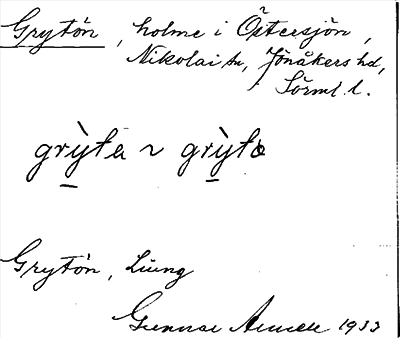 Grytön, holme i Östersjön,
Nikolai sn, Jönåkers hd,
Sörml. l.
grỳtɑ ~ grỳtə
Grytön, Ljung
Gunnar 1933